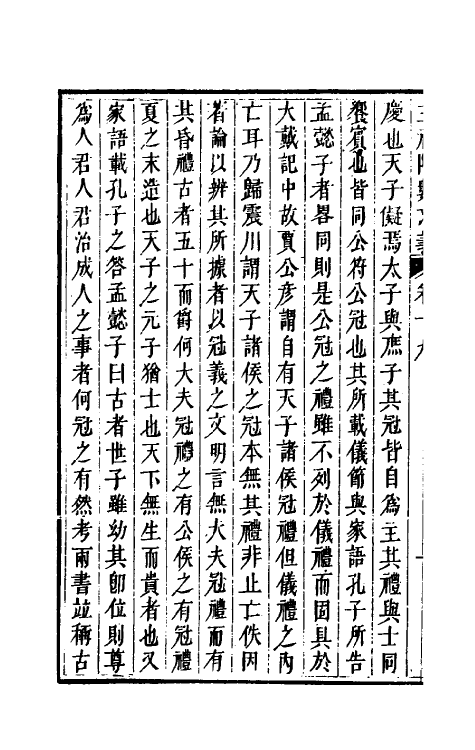 慶也天子儗焉太子與庶子其冠皆自爲主其禮與士同
饗賓也皆同公符公冠也其所載儀節與家語孔子所告
孟懿子者畧同則是公冠之禮雖不列於儀禮而固具於
大戴記中故賈公彥謂自有天子諸侯冠禮但儀禮之內
亡耳乃歸震川謂天子諸侯之冠本無其禮非止亡佚因
著論以辨其所據者以冠義之文明言無大夫冠禮而有
其昏禮古者五十而爵何大夫冠禮之有公侯之有冠禮
夏之末造也天子之元子猶士也天下無生而貴者也又
家語載孔子之答孟懿子曰古者世子雖幼其卽位則尊
爲人君人君治成人之事者何冠之有然考兩書竝稱古